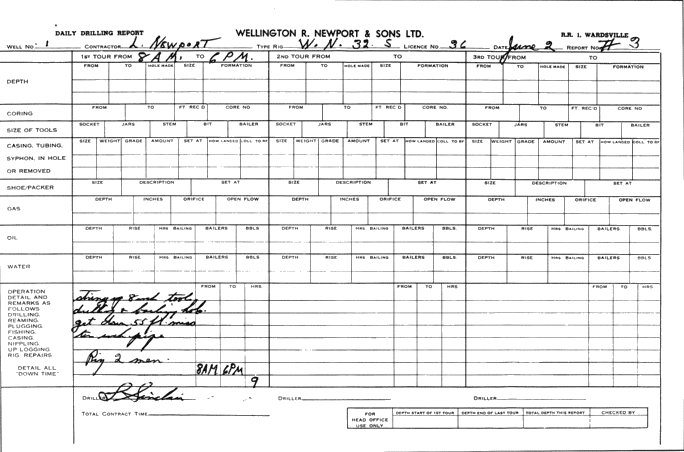 DAILY DRILLING REPORT WELLINGTON R. NEWPORT & SONS LTD. R.R. 1, WARDSVILLE
WELL No. 1 CONTRACTOR L. Newport TYPE RIG W. N. 32. S LICENCE No 36 DATE June 2 REPORT No # 3
1ST TOUR FROM 8 AM. TO 6 PM. 2ND TOUR FROM TO 3RD TOUR FROM TO
FROM TO HOLE MADE SIZE FORMATION FROM TO HOLE MADE SIZE FORMATION FROM TO HOLE MADE SIZE FORMATION
DEPTH
FROM TO FT REC'D CORE NO FROM TO FT REC'D CORE NO. FROM TO FT REC'D CORE NO
CORING
SOCKET JARS STEM BIT BAILER SOCKET JARS STEM BIT BAILER SOCKET JARS STEM BIT BAILER
SIZE OF TOOLS
SIZE WEIGHT GRADE AMOUNT SET AT HOW LANDED COLL. TO RF SIZE WEIGHT GRADE AMOUNT SET AT HOW LANDED COLL. TO RF SIZE WEIGHT GRADE AMOUNT SET AT HOW LANDED COLL. TO RF
CASING, TUBING,
SYPHON, IN HOLE
OR REMOVED
SIZE DESCRIPTION SET AT SIZE DESCRIPTION SET AT SIZE DESCRIPTION SET AT
SHOE/PACKER
DEPTH INCHES ORIFICE OPEN FLOW DEPTH INCHES ORIFICE OPEN FLOW DEPTH INCHES ORIFICE OPEN FLOW
GAS
DEPTH RISE HRS BAILING BAILERS BBLS DEPTH RISE HRS BAILING BAILERS BBLS. DEPTH RISE HRS BAILING BAILERS BBLS.
OIL
DEPTH RISE HRS BAILING BAILERS BBLS DEPTH RISE HRS BAILING BAILERS BBLS. DEPTH RISE HRS BAILING BAILERS BBLS
WATER
FROM TO HRS FROM TO HRS FROM TO HRS
OPERATION
DETAIL AND
REMARKS AS
FOLLOWS
DRILLING.
REAMING.
PLUGGING.
FISHING.
CASING.
NIPPLING.
UP LOGGING
RIG REPAIRS
DETAIL ALL
"DOWN TIME"
string up 8 inch tools
drilling & bailing hole
get down 55 ft
ten inch pipe
Rig 2 men.
8AM 6PM
9
DRILLER Sinclair DRILLER DRILLER
TOTAL CONTRACT TIME
FOR HEAD OFFICE USE ONLY DEPTH START OF 1ST TOUR DEPTH END OF LAST TOUR TOTAL DEPTH THIS REPORT CHECKED BY